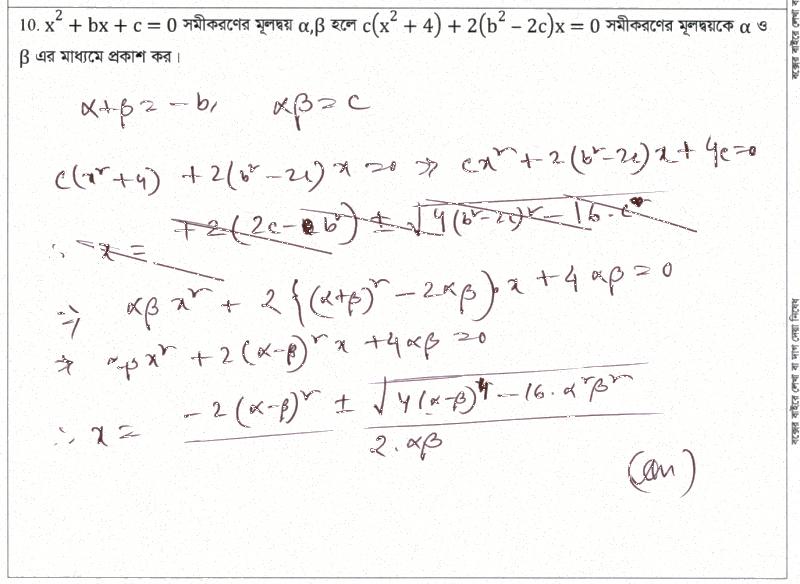 10. x² + bx + c = 0 সমীকরণের মূলদ্বয় α,β হলে c(x² + 4) + 2(b² − 2c)x = 0 সমীকরণের মূলদ্বয়কে α ও
β এর মাধ্যমে প্রকাশ কর।
α+β = −b, αβ = c
c(x²+4) + 2(b²−2c) x = 0 ⇒ cx² + 2(b²−2c)x + 4c = 0
∴ x = +2(2c−b²) ± √4(b²−2c)² − 16·c²
⇒ αβ x² + 2{(α+β)² − 2αβ}·x + 4αβ = 0
⇒ αβx² + 2(α−β)² x + 4αβ = 0
∴ x = −2(α−β)² ± √4(α−β)⁴ − 16·α²β²
2·αβ
(Ans)
বক্সের বাইরে লেখা বা দাগ দেয়া নিষেধ